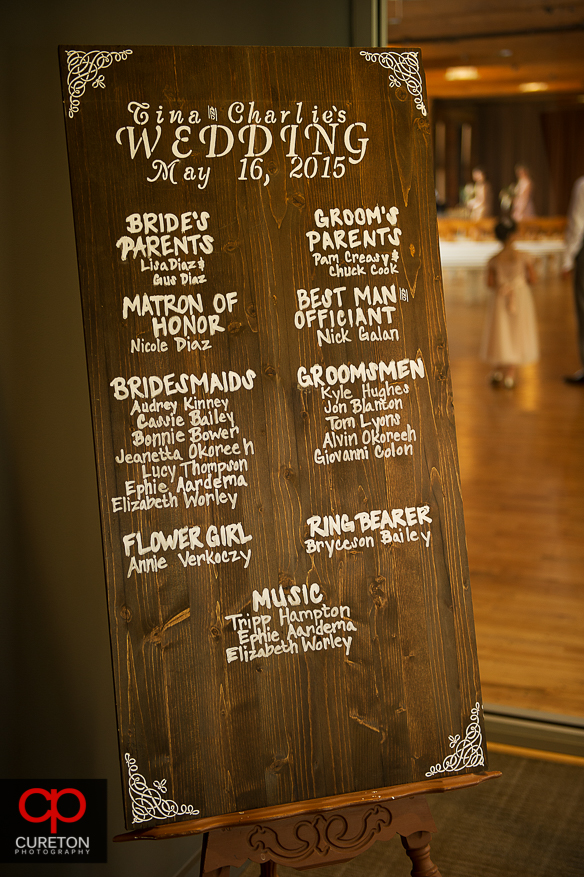 Tina & Charlie's
WEDDING
May 16, 2015
BRIDE'S
PARENTS
Lisa Diaz &
Gus Diaz
GROOM'S
PARENTS
Pam Creasy &
Chuck Cook
MATRON OF
HONOR
Nicole Diaz
BEST MAN &
OFFICIANT
Nick Galan
BRIDESMAIDS
Audrey Kinney
Cassie Bailey
Bonnie Bower
Jeanetta Okoreeh
Lucy Thompson
Ephie Aardema
Elizabeth Worley
GROOMSMEN
Kyle Hughes
Jon Blanton
Tom Lyons
Alvin Okoreeh
Giovanni Colon
FLOWER GIRL
Annie Verkoczy
RING BEARER
Bryceson Bailey
MUSIC
Tripp Hampton
Ephie Aardema
Elizabeth Worley
CP
CURETON
PHOTOGRAPHY